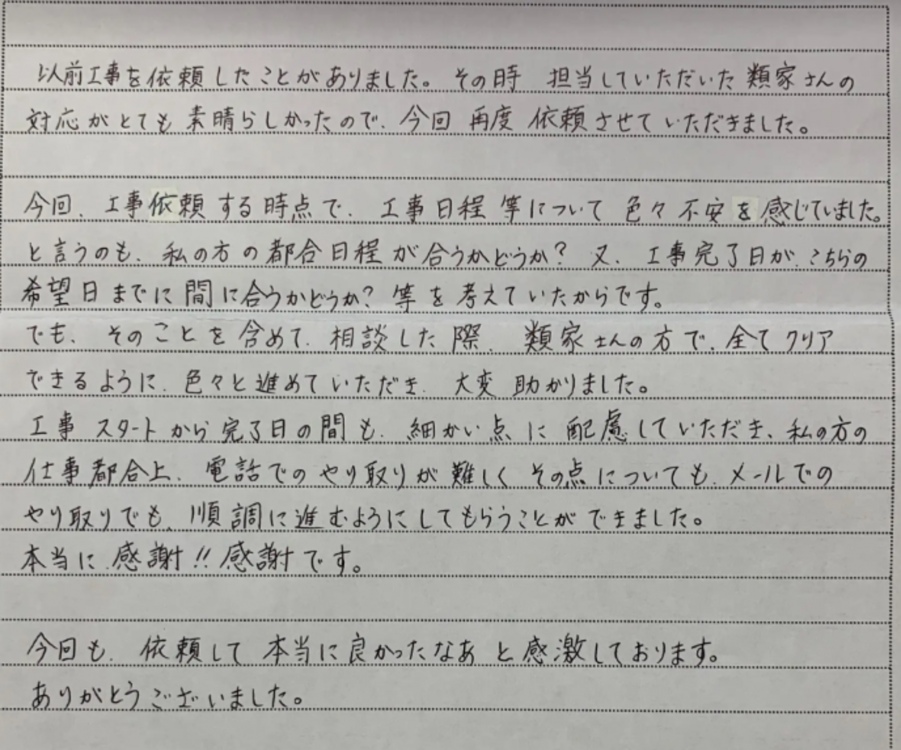 以前工事を依頼したことがありました。その時 担当していただいた類家さんの
対応がとても素晴らしかったので、今回再度依頼させていただきました。
今回、工事依頼する時点で、工事日程等について色々不安を感じていました。
と言うのも、私の方の都合日程が合うかどうか?又、工事完了日が、こちらの
希望日までに間に合うかどうか?等を考えていたからです。
でも、そのことを含めて、相談した際、類家さんの方で、全てクリア
できるように、色々と進めていただき、大変助かりました。
工事スタートから完了日の間も、細かい点に配慮していただき、私の方の
仕事都合上、電話でのやり取りが難しくその点についても、メールでの
やり取りでも、順調に進むようにしてもらうことができました。
本当に、感謝!!感謝です。
今回も、依頼して本当に良かったなあと感激しております。
ありがとうございました。